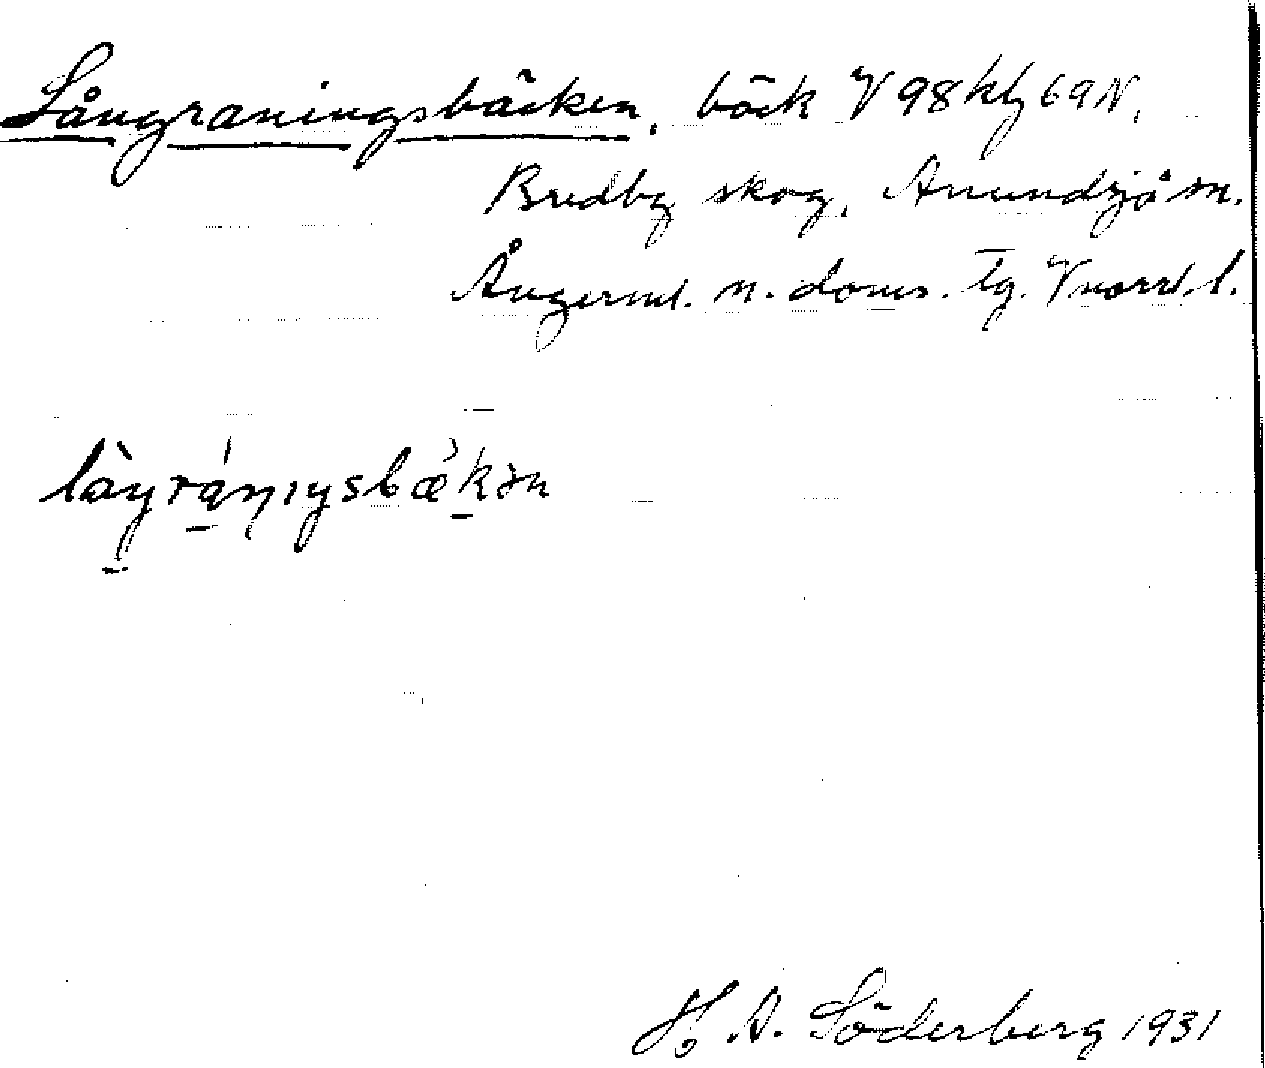 Långraningsbäcken, bäck V 98 hlz 69 N,
Bredby skog, Anundsjö sn.
Ångerml. n. doms. tg. Vnorrl. l.
H. A. Söderberg 1931